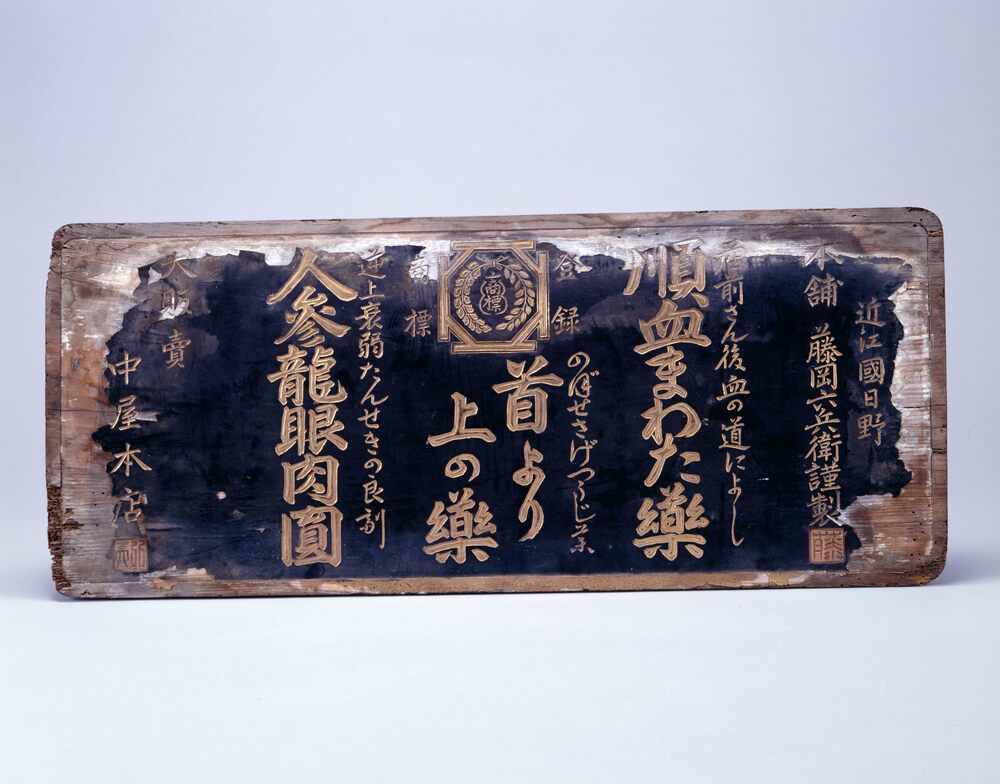 近江國日野
本舗 藤岡六兵衛謹製
産前さん後血の道によし
順血まわた藥
登録
商標
商標
のぼせさげつうじ薬
首より
上の藥
逆上衰弱たんせきの良剤
人參龍眼肉圓
大販賣
中屋本店